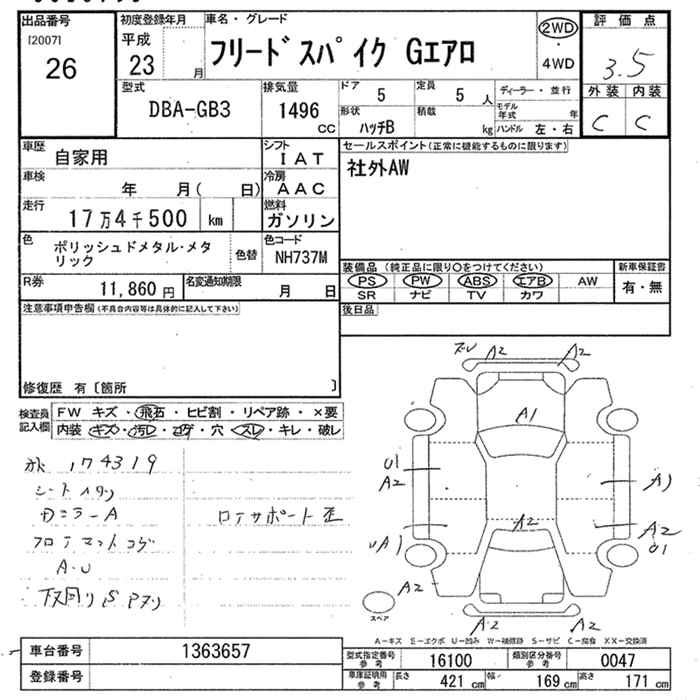 出品番号
[2007]
26
初度登録年月
平成
23 月
車名・グレード
フリードスパイク Gエアロ
2WD
4WD
評価点
3.5
外装 内装
C C
型式
DBA-GB3
排気量
1496
CC
ドア
5
定員
5 人
形状
ハッチB
積載
kg
ディーラー・並行
モデル年式 年
ハンドル 左・右
車歴
自家用
シフト
IAT
車検
年 月( 日)
冷房
AAC
走行
17万4千500 km
燃料
ガソリン
色
ポリッシュドメタル・メタリック
色替
色コード
NH737M
R券
11,860 円
名変通知期限
月 日
セールスポイント(正常に機能するものに限ります)
社外AW
装備品(純正品に限り○をつけてください)
PS PW ABS エアB AW
SR ナビ TV カワ
新車保証書
有・無
後日品
注意事項申告欄(不具合内容等は具体的に記入して下さい)
修復歴 有〔箇所 〕
検査員記入欄
FW キズ・飛石・ヒビ割・リペア跡・×要
内装 キズ・汚レ・コゲ・穴・スレ・キレ・破レ
174319
シート
ロテサポート歪
A-U
A2 A2
A1
U1
A2
A2
A2
U1
A2
A2 A2
スペア
A-キズ E-エクボ U-凹み W-補修跡 S-サビ C-腐食 XX-交換済
車台番号
1363657
登録番号
型式指定番号
参考
16100
類別区分番号
参考
0047
車庫証明用
参考
長さ 421 cm 幅 169 cm 高さ 171 cm